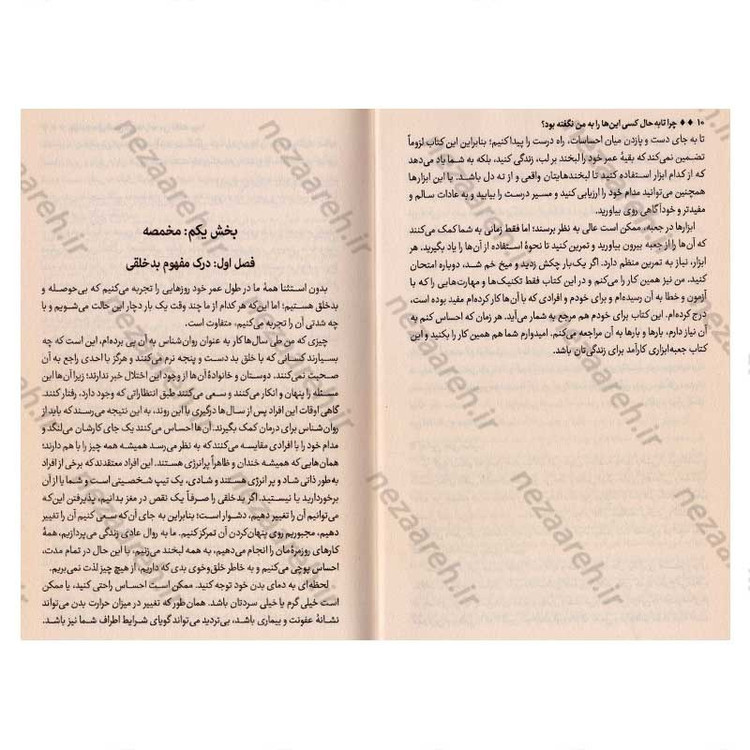 ۱۰ ♦♦ چرا تا به حال کسی این‌ها را به من نگفته بود؟
تا به جای دست و پازدن میان احساسات، راه درست را پیدا کنیم؛ بنابراین این کتاب لزوماً
تضمین نمی‌کند که بقیهٔ عمر خود را لبخند بر لب، زندگی کنید، بلکه به شما یاد می‌دهد
که از کدام ابزار استفاده کنید تا لبخندهایتان واقعی و از ته دل باشد. با این ابزارها
همچنین می‌توانید مدام خود را ارزیابی کنید و مسیر درست را بیابید و به عادات سالم و
مفیدتر و خودآگاهی روی بیاورید.
ابزارها در جعبه، ممکن است عالی به نظر برسند؛ اما فقط زمانی به شما کمک می‌کنند
که آن‌ها را از جعبه بیرون بیاورید و تمرین کنید تا نحوهٔ استفاده از آن‌ها را یاد بگیرید. هر
ابزار، نیاز به تمرین منظم دارد. اگر یک‌بار چکش زدید و میخ خم شد، دوباره امتحان
کنید. من نیز همین کار را می‌کنم و در این کتاب فقط تکنیک‌ها و مهارت‌هایی را که با
آزمون و خطا به آن رسیده‌ام و برای خودم و افرادی که با آن‌ها کار کرده‌ام مفید بوده است،
درج کرده‌ام. این کتاب برای خودم هم مرجع به شمار می‌آید. هر زمان که احساس کنم به
آن نیاز دارم، بارها و بارها به آن مراجعه می‌کنم. امیدوارم شما هم همین کار را بکنید و این
کتاب جعبه‌ابزاری کارآمد برای زندگی‌تان باشد.
بخش یکم: مخمصه
فصل اول: درک مفهوم بدخلقی
بدون استثنا همهٔ ما در طول عمر خود روزهایی را تجربه می‌کنیم که بی‌حوصله و
بدخلق هستیم؛ اما این‌که هر کدام از ما چند وقت یک بار دچار این حالت می‌شویم و با
چه شدتی آن را تجربه می‌کنیم، متفاوت است.
چیزی که من طی سال‌ها کار به عنوان روان‌شناس به آن پی برده‌ام، این است که چه
بسیارند کسانی که با خلق بد دست و پنجه نرم می‌کنند و هرگز با احدی راجع به آن
صحبت نمی‌کنند. دوستان و خانوادهٔ آن‌ها از وجود این اختلال خبر ندارند؛ زیرا آن‌ها این
مسئله را پنهان و انکار می‌کنند و سعی می‌کنند طبق انتظاراتی که وجود دارد، رفتار کنند.
گاهی اوقات این افراد پس از سال‌ها درگیری با این روند، به این نتیجه می‌رسند که باید از
روان‌شناس برای درمان کمک بگیرند. آن‌ها احساس می‌کنند یک جای کارشان می‌لنگد و
مدام خود را با افرادی مقایسه می‌کنند که به نظر می‌رسد همیشه همه چیز را با هم دارند؛
همان‌هایی که همیشه خندان و ظاهراً پرانرژی هستند. این افراد معتقدند که برخی از افراد
به‌طور ذاتی شاد و پر انرژی هستند و شادی، یک تیپ شخصیتی است و شما یا از آن
برخوردارید یا نیستید. اگر بدخلقی را صرفاً یک نقص در مغز بدانیم، پذیرفتن این‌که
می‌توانیم آن را تغییر دهیم، دشوار است؛ بنابراین به جای آن‌که سعی کنیم آن را تغییر
دهیم، مجبوریم روی پنهان‌کردن آن تمرکز کنیم. ما به روال عادی زندگی می‌پردازیم، همهٔ
کارهای روزمره‌مان را انجام می‌دهیم، به همه لبخند می‌زنیم. با این حال در تمام مدت،
احساس پوچی می‌کنیم و به خاطر خلق‌وخوی بدی که داریم، از هیچ چیز لذت نمی‌بریم.
لحظه‌ای به دمای بدن خود توجه کنید. ممکن است احساس راحتی کنید، یا ممکن
است خیلی گرم یا خیلی سردتان باشد. همان‌طور که تغییر در میزان حرارت بدن می‌تواند
نشانهٔ عفونت و بیماری باشد، بی‌تردید می‌تواند گویای شرایط اطراف شما نیز باشد.
nezaareh.ir
nezaareh.ir
nezaareh.ir
nezaareh.ir
nezaareh.ir
nezaareh.ir